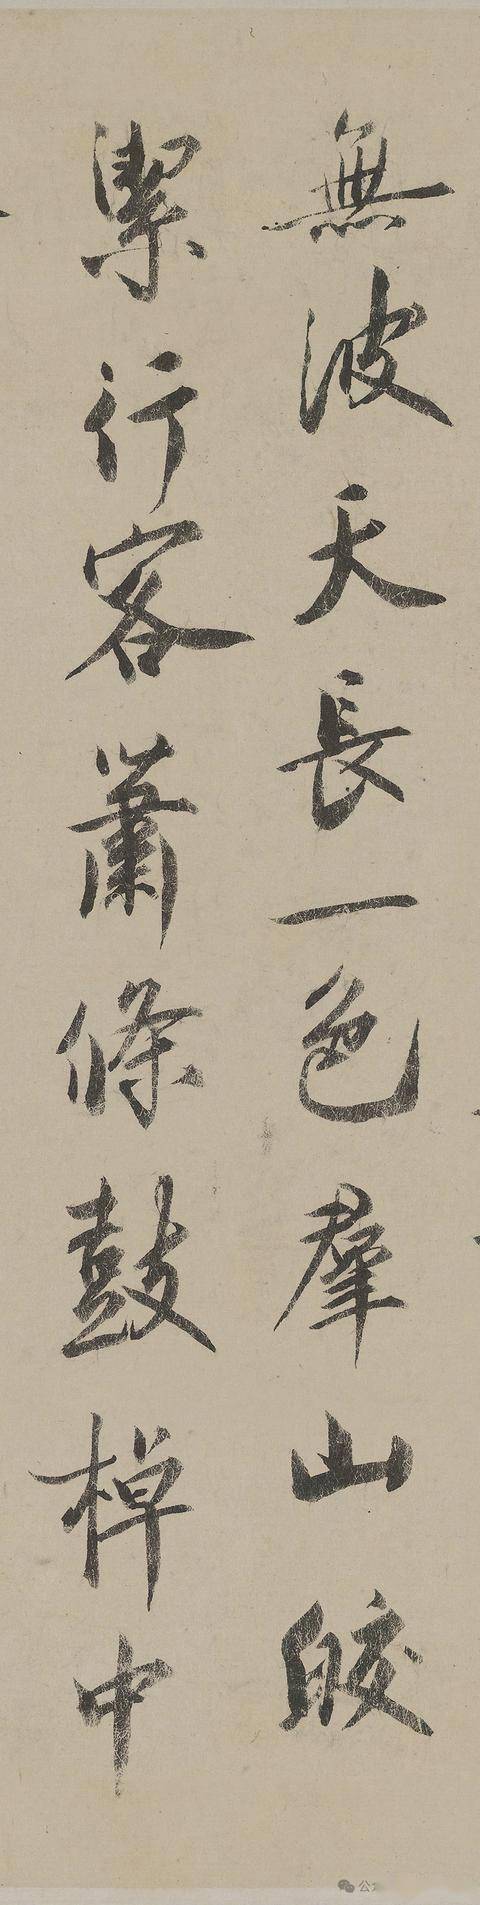 無波天長一色羣山皎
潔行客蕭條鼓棹中
公